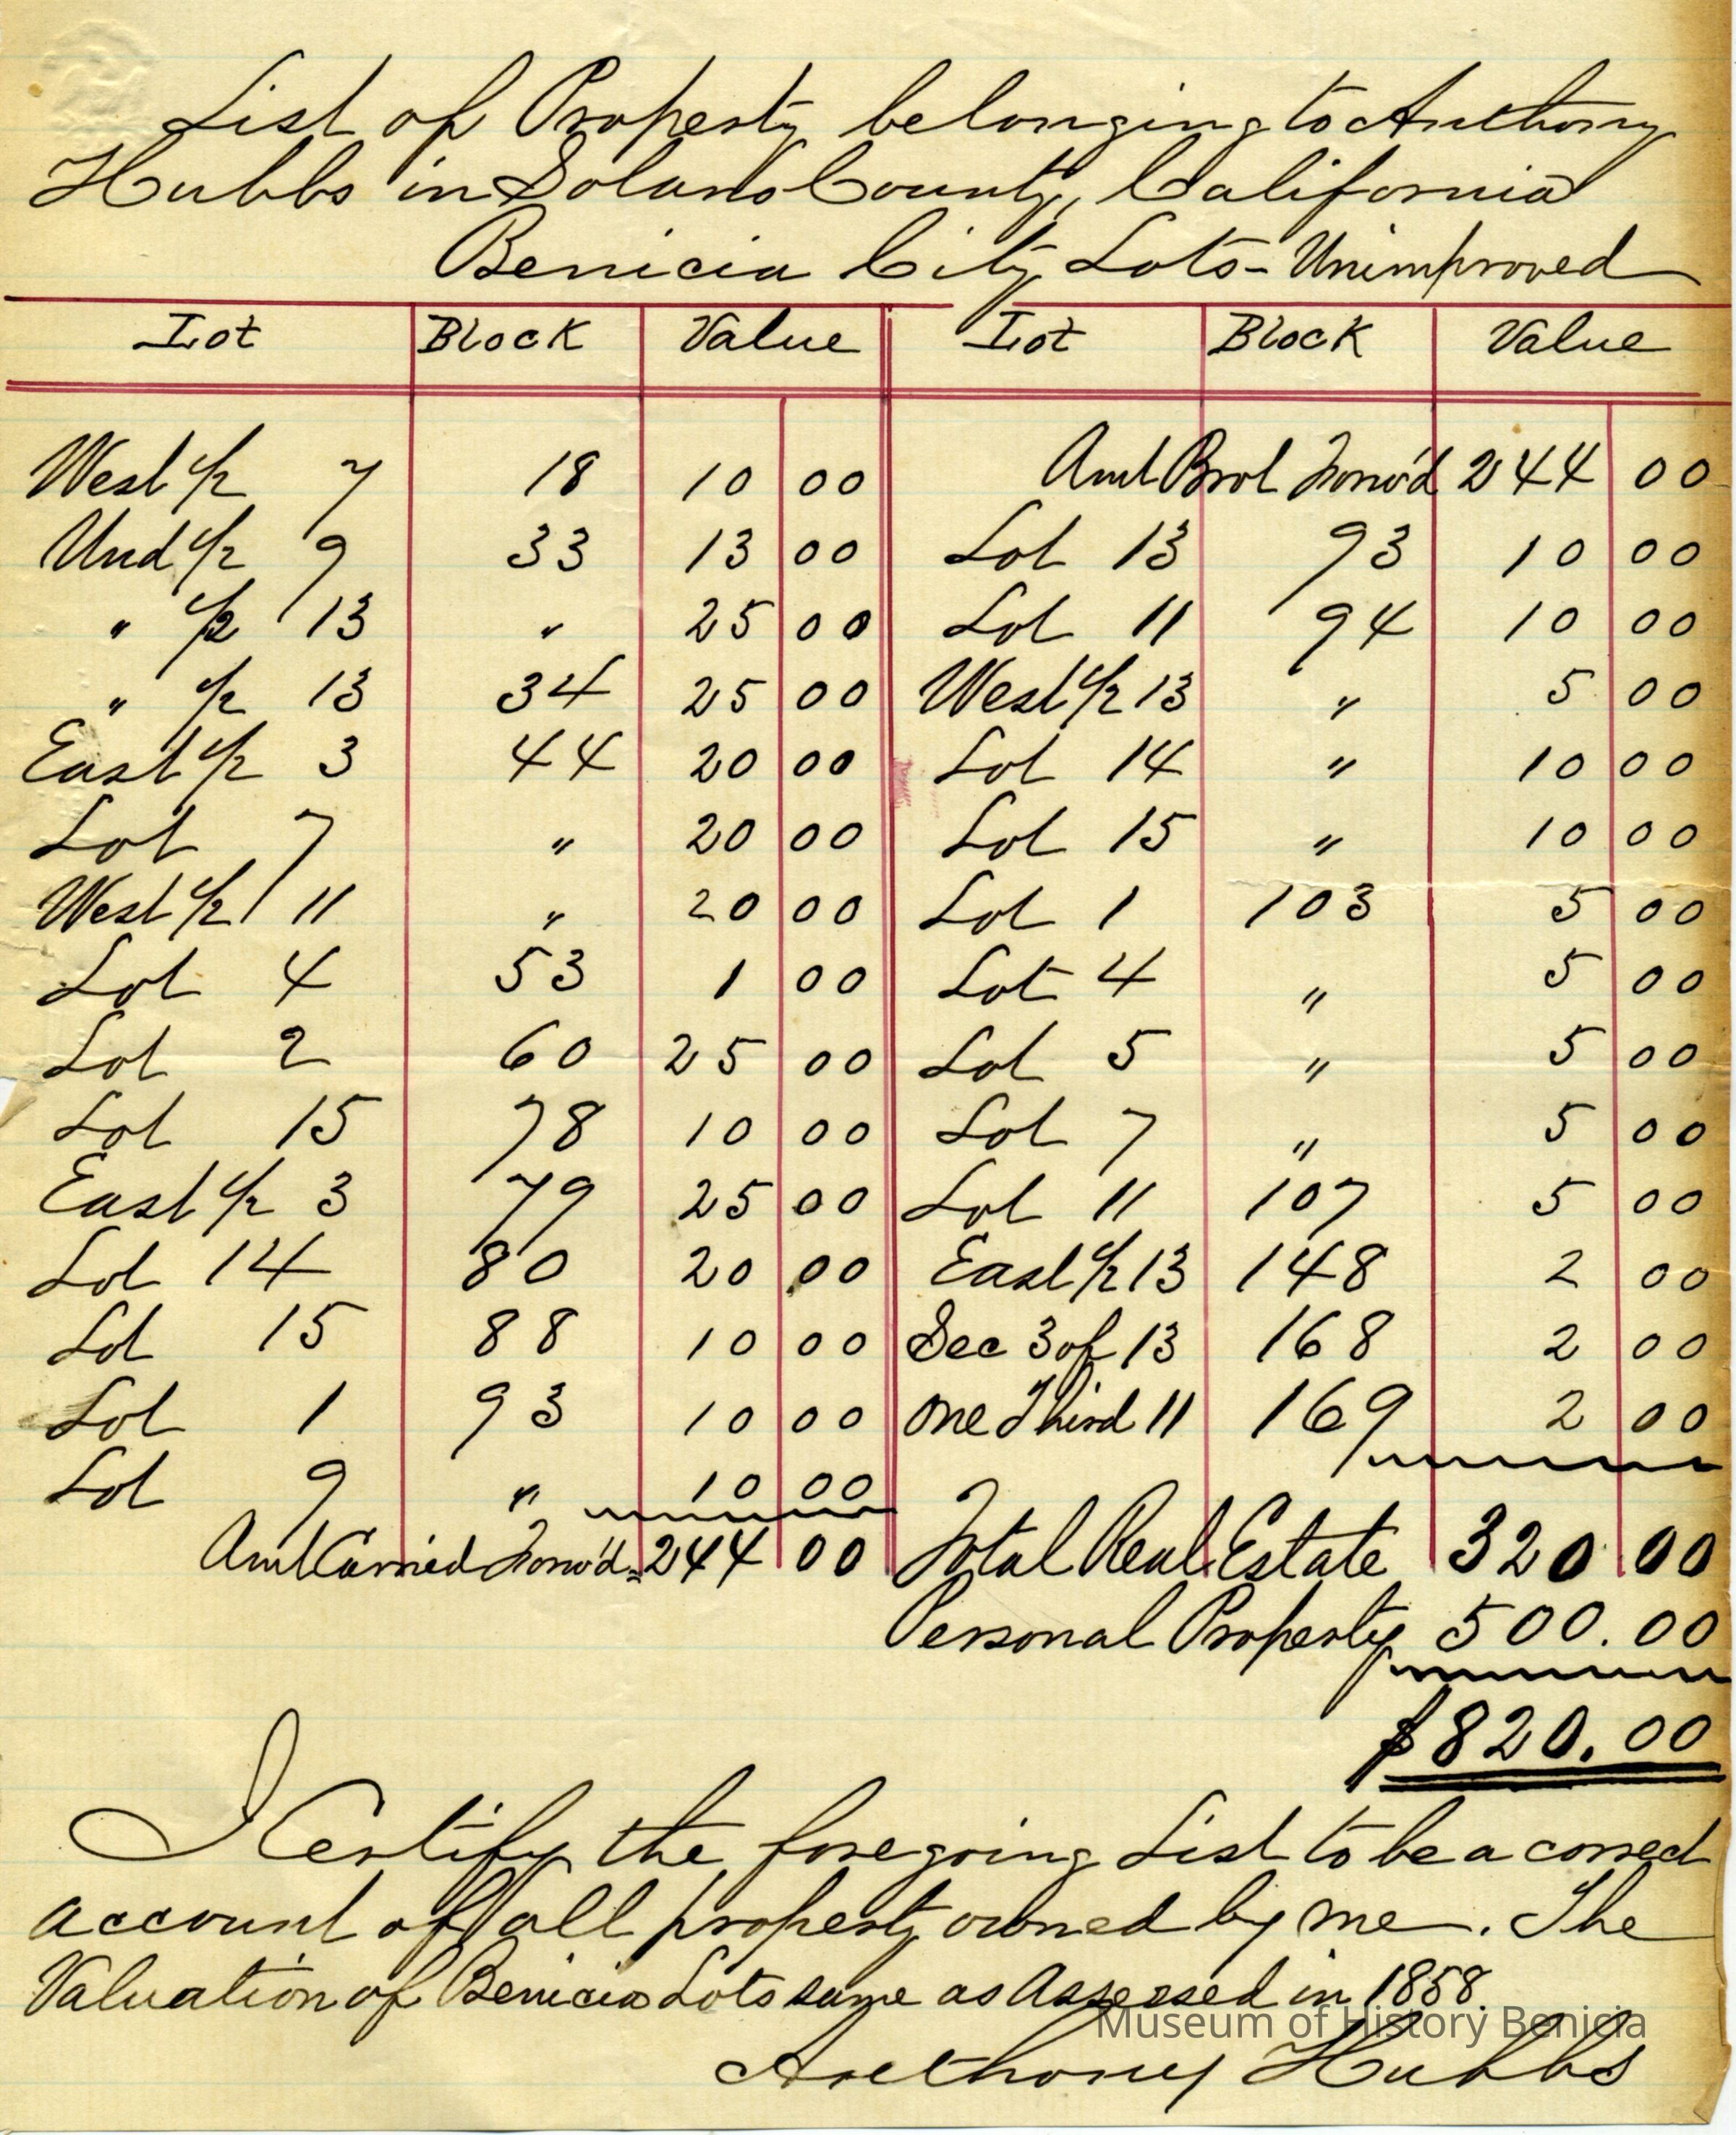 List of Property belonging to Anthony
Hubbs in Solano County, California
Benicia City Lots - Unimproved
Lot Block Value Lot Block Value
West 1/2 7 18 10 00 Amt Brot Forw'd 244 00
Und 1/2 9 33 13 00 Lot 13 93 10 00
" 1/2 13 " 25 00 Lot 11 94 10 00
" 1/2 13 34 25 00 West 1/2 13 " 5 00
East 1/2 3 44 20 00 Lot 14 " 10 00
Lot 7 " 20 00 Lot 15 " 10 00
West 1/2 11 " 20 00 Lot 1 103 5 00
Lot 4 53 1 00 Lot 4 " 5 00
Lot 2 60 25 00 Lot 5 " 5 00
Lot 15 78 10 00 Lot 7 " 5 00
East 1/2 3 79 25 00 Lot 11 107 5 00
Lot 14 80 20 00 East 1/2 13 148 2 00
Lot 15 88 10 00 Sec 3 of 13 168 2 00
Lot 1 93 10 00 One Third 11 169 2 00
Lot 9 " 10 00
Amt Carried Forw'd = 244 00 Total Real Estate 320.00
Personal Property 500.00
$820.00
I Certify the foregoing List to be a correct
account of all property owned by me. The
Valuation of Benicia Lots same as Assessed in 1858.
Museum of History Benicia
Anthony Hubbs